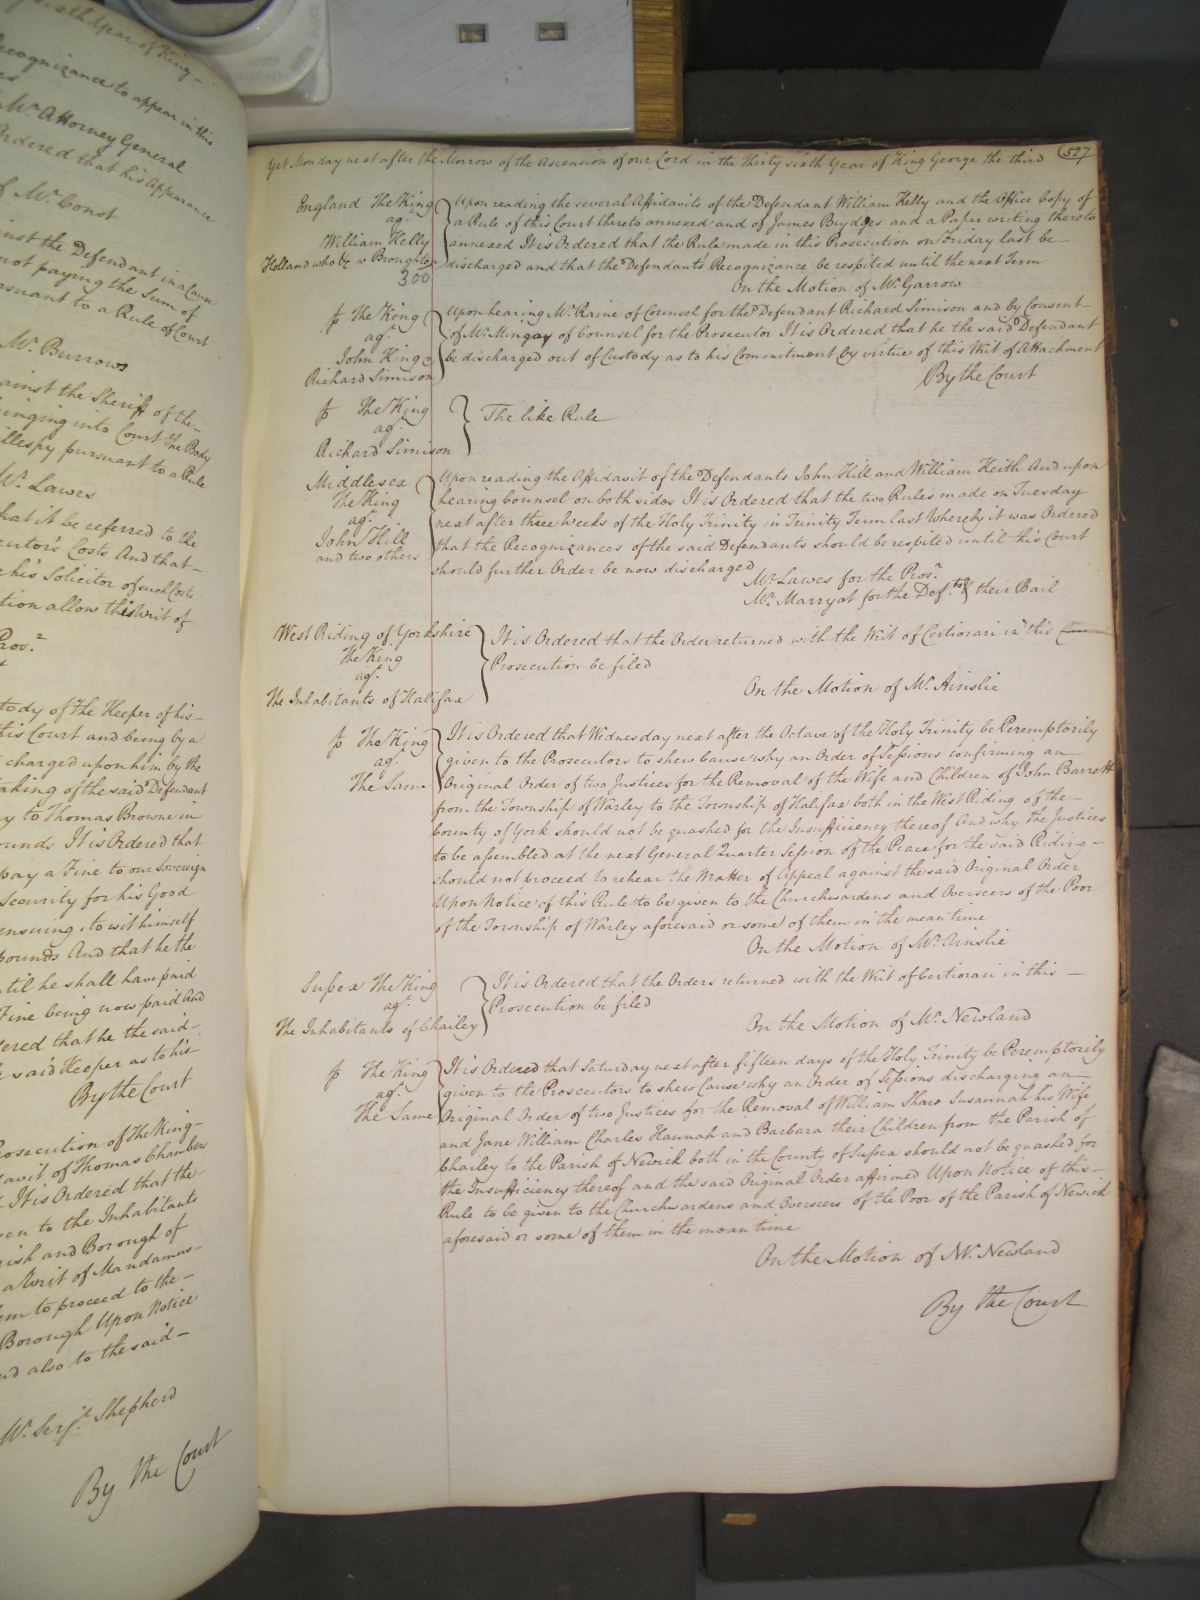 Sixth Year of King –
Recognizance to appear in this
Mr. Attorney General
Ordered that his Appearance
of Mr. Const
against the Defendant in a Cause
not paying the Sum of
pursuant to a Rule of Court
Mr. Burrows
against the Sheriff of the –
bringing into Court the Body
pursuant to a Rule
Mr. Lawes
that it be referred to the
Costs And that –
his Solicitor of such Costs
allow this Writ of
Pros.r
Custody of the Keeper of his –
this Court and being by a
charged upon him by the
taking of the said Defendant
to Thomas Browne in
It is Ordered that
pay a Fine to our Sovereign
Security for his Good
ensuing, to wit himself
pounds And that he the
until he shall have paid
Fine being now paid And
Ordered that he the said –
said Keeper as to his –
By the Court
Prosecution of the King –
of Thomas Chambers
It is Ordered that the
given to the Inhabitants
Parish and Borough of
a Writ of Mandamus –
them to proceed to the –
Borough Upon Notice
and also to the said –
Mr. Serjt. Shepherd
By the Court
Yet Monday next after the Morrow of the Ascension of our Lord in the Thirty sixth Year of King George the third 537
England The King
agt.
William Kelly
Holland who &c v Broughton
300
Upon reading the several Affidavits of the Defendant William Kelly and the Office Copy of
a Rule of this Court thereto annexed and of James Brydges and a Paper writing thereto
annexed It is Ordered that the Rule made in this Prosecution on Friday last be –
discharged and that the Defendants Recognizance be respited until the next Term
On the Motion of Mr. Garrow
The King
agt.
John King &
Richard Simison
Upon hearing Mr. Raine of Counsel for the Defendant Richard Simison and by Consent –
of Mr. Mingay of Counsel for the Prosecutor It is Ordered that he the said Defendant
be discharged out of Custody as to his Commitment by virtue of this Writ of Attachment
By the Court
The King
agt.
Richard Simison
The like Rule
Middlesex
The King
agt.
John Hill
and two others
Upon reading the Affidavit of the Defendants John Hill and William Keith And upon
hearing Counsel on both sides It is Ordered that the two Rules made on Tuesday
next after three Weeks of the Holy Trinity in Trinity Term last Whereby it was Ordered
that the Recognizances of the said Defendants should be respited until this Court
should further Order be now discharged
Mr. Lawes for the Pros.r
Mr. Marryat for the Def.ts & their Bail
West Riding of Yorkshire
The King
agt.
The Inhabitants of Halifax
It is Ordered that the Order returned with the Writ of Certiorari in this
Prosecution be filed
On the Motion of Mr. Ainslie
The King
agt.
The Same
It is Ordered that Wednesday next after the Octave of the Holy Trinity be Peremptorily
given to the Prosecutors to shew Cause why an Order of Sessions confirming an –
Original Order of two Justices for the Removal of the Wife and Children of John Barrett
from the Township of Warley to the Township of Halifax both in the West Riding of the –
County of York should not be quashed for the Insufficiency thereof And why the Justices
to be assembled at the next General Quarter Session of the Peace for the said Riding –
should not proceed to rehear the Matter of Appeal against the said Original Order
Upon Notice of this Rule to be given to the Churchwardens and Overseers of the Poor
of the Township of Warley aforesaid or some of them in the mean time
On the Motion of Mr. Ainslie
Sussex The King
agt.
The Inhabitants of Chailey
It is Ordered that the Orders returned with the Writ of Certiorari in this –
Prosecution be filed
On the Motion of Mr. Newland
The King
agt.
The Same
It is Ordered that Saturday next after fifteen days of the Holy Trinity be Peremptorily
given to the Prosecutors to shew Cause why an Order of Sessions discharging an –
Original Order of two Justices for the Removal of William Shaw Susannah his Wife
and Jane William Charles Hannah and Barbara their Children from the Parish of
Chailey to the Parish of Newick both in the County of Sussex should not be quashed for
the Insufficiency thereof and the said Original Order affirmed Upon Notice of this –
Rule to be given to the Churchwardens and Overseers of the Poor of the Parish of Newick
aforesaid or some of them in the mean time
On the Motion of Mr. Newland
By the Court